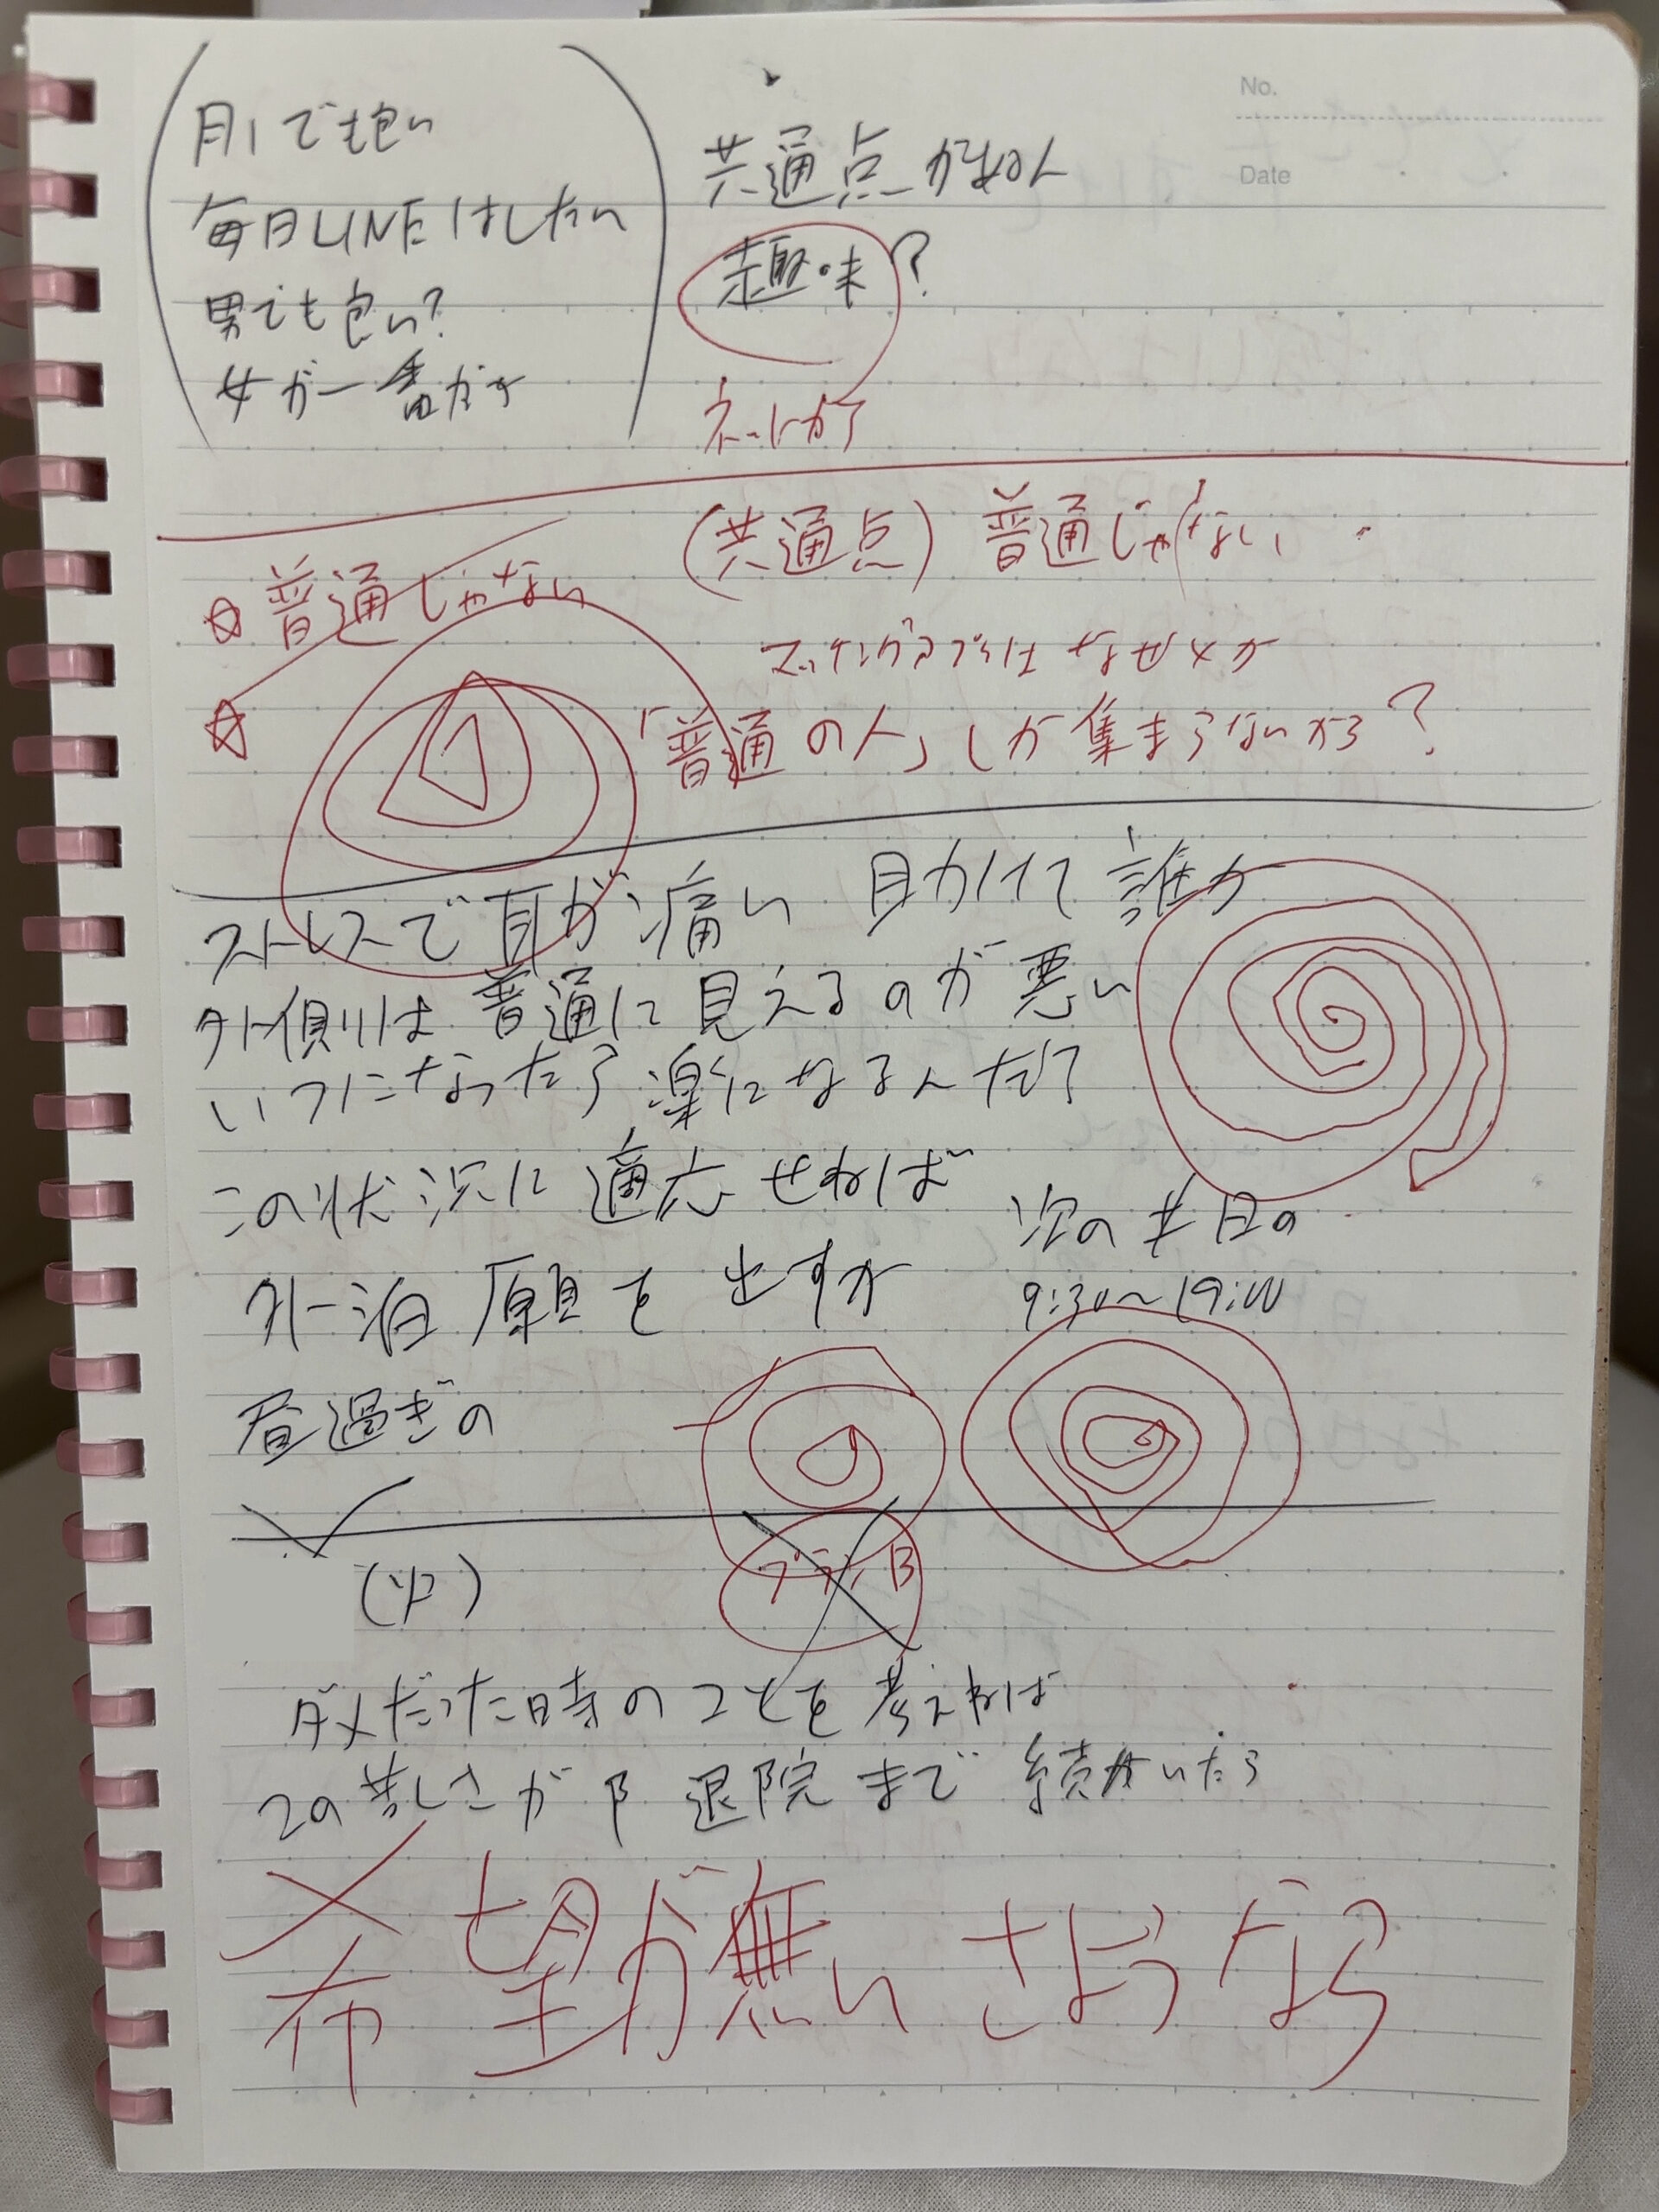 No.
Date
月1でも良い
毎日LINEはしたい
男でも良い?
女が一番かな
共通点がなぁ
趣味?
ネットから
(共通点) 普通じゃない
☆普通じゃない
☆
マッチングアプリはなぜ×か
「普通の人」しか集まらないから?
ストレスで耳が痛い 助けて誰か
外側は普通に見えるのが悪い
いつになったら楽になるんだ?
この状況に適応せねば
次の木曜の
外泊願を出すか
9:30〜19:00
昼過ぎの
(火)
プランB
ダメだった時のことを考えねば
この苦しさが 退院まで続いたら
希望が無い さようなら